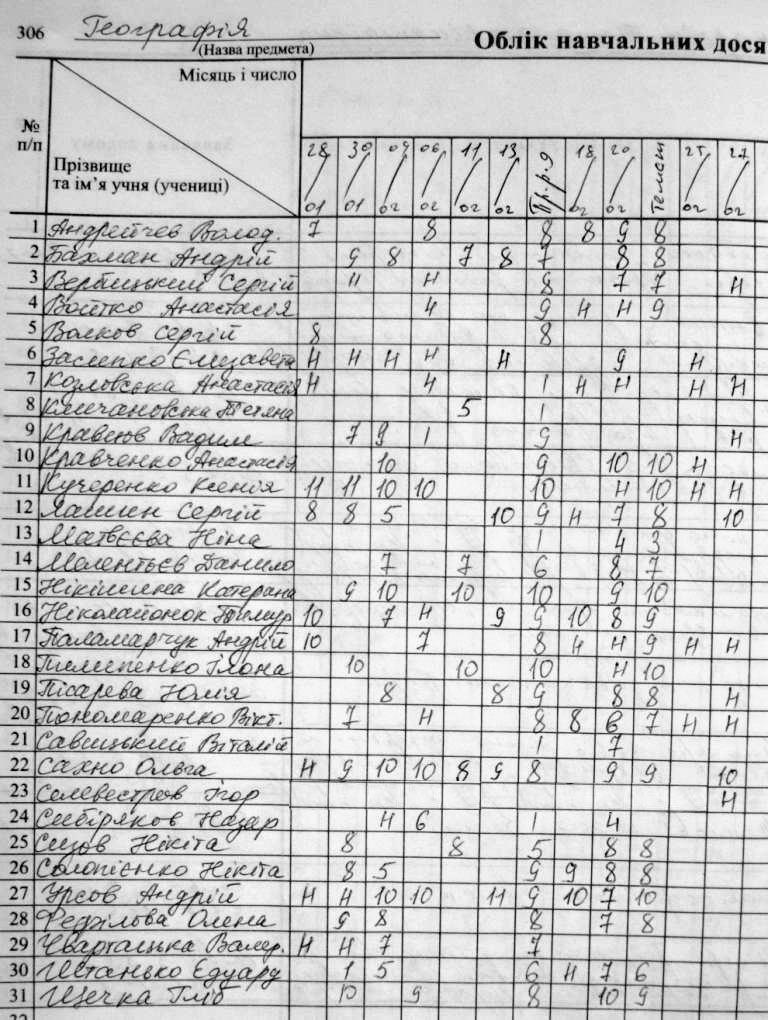 306 Географія
(Назва предмета)
Облік навчальних дося
Місяць і число
№ п/п
Прізвище та ім'я учня (учениці)
28/01 30/01 04/02 06/02 11/02 13/02 Пр.р.9 18/02 20/02 Темат 25/02 27/02
1 Андрейчев Волод. 7 8 8 8 9 8
2 Бахман Андрій 9 8 7 8 7 8 8
3 Вербицький Сергій н н 8 7 7 н
4 Войтко Анастасія 4 9 н н 9
5 Волков Сергій 8 8
6 Засипко Єлизавета н н н н н 9 н
7 Козловська Анастасія н 4 1 н н н н
8 Климчановська Тетяна 5 1
9 Кравцов Вадим 7 9 1 9 н
10 Кравченко Анастасія 10 9 10 10 н
11 Кучеренко Ксенія 11 11 10 10 10 н 10 н н
12 Лашин Сергій 8 8 5 10 9 н 7 8 10
13 Матвєєва Ніна 1 4 3
14 Мелентьєв Данило 7 7 6 8 7
15 Нікішина Катерана 9 10 10 10 9 10
16 Ніколайонок Тимур 10 7 н 9 9 10 8 9
17 Паламарчук Андрій 10 7 8 н н 9 н н
18 Пилипенко Ілона 10 10 10 н 10
19 Пісарева Юлія 8 8 9 8 8 н
20 Пономаренко Вікт. 7 н 8 8 6 7 н н
21 Савицький Віталій 1 7
22 Сахно Ольга н 9 10 10 8 9 8 9 9 10
23 Селевестров Ігор н
24 Сибіряков Назар н 6 1 4
25 Сизов Нікіта 8 8 5 8 8
26 Солопієнко Нікіта 8 5 9 9 8 8
27 Урсов Андрій н н 10 10 11 9 10 7 10
28 Феділова Олена 9 8 8 7 8
29 Чвартацька Валер. н н 7 7
30 Шстанько Едуард 1 5 6 н 7 6
31 Щечка Гліб 10 9 8 10 9